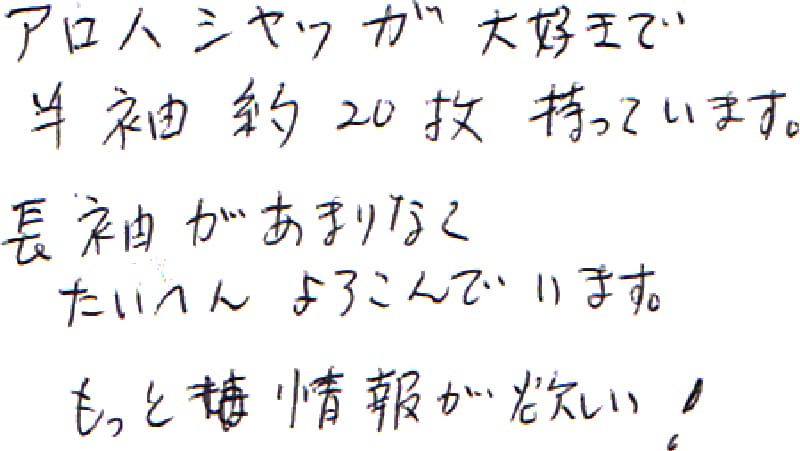 アロハシャツが大好きで
半袖約20枚持っています。
長袖があまりなく
たいへんよろこんでいます。
もっと情報が欲しい!